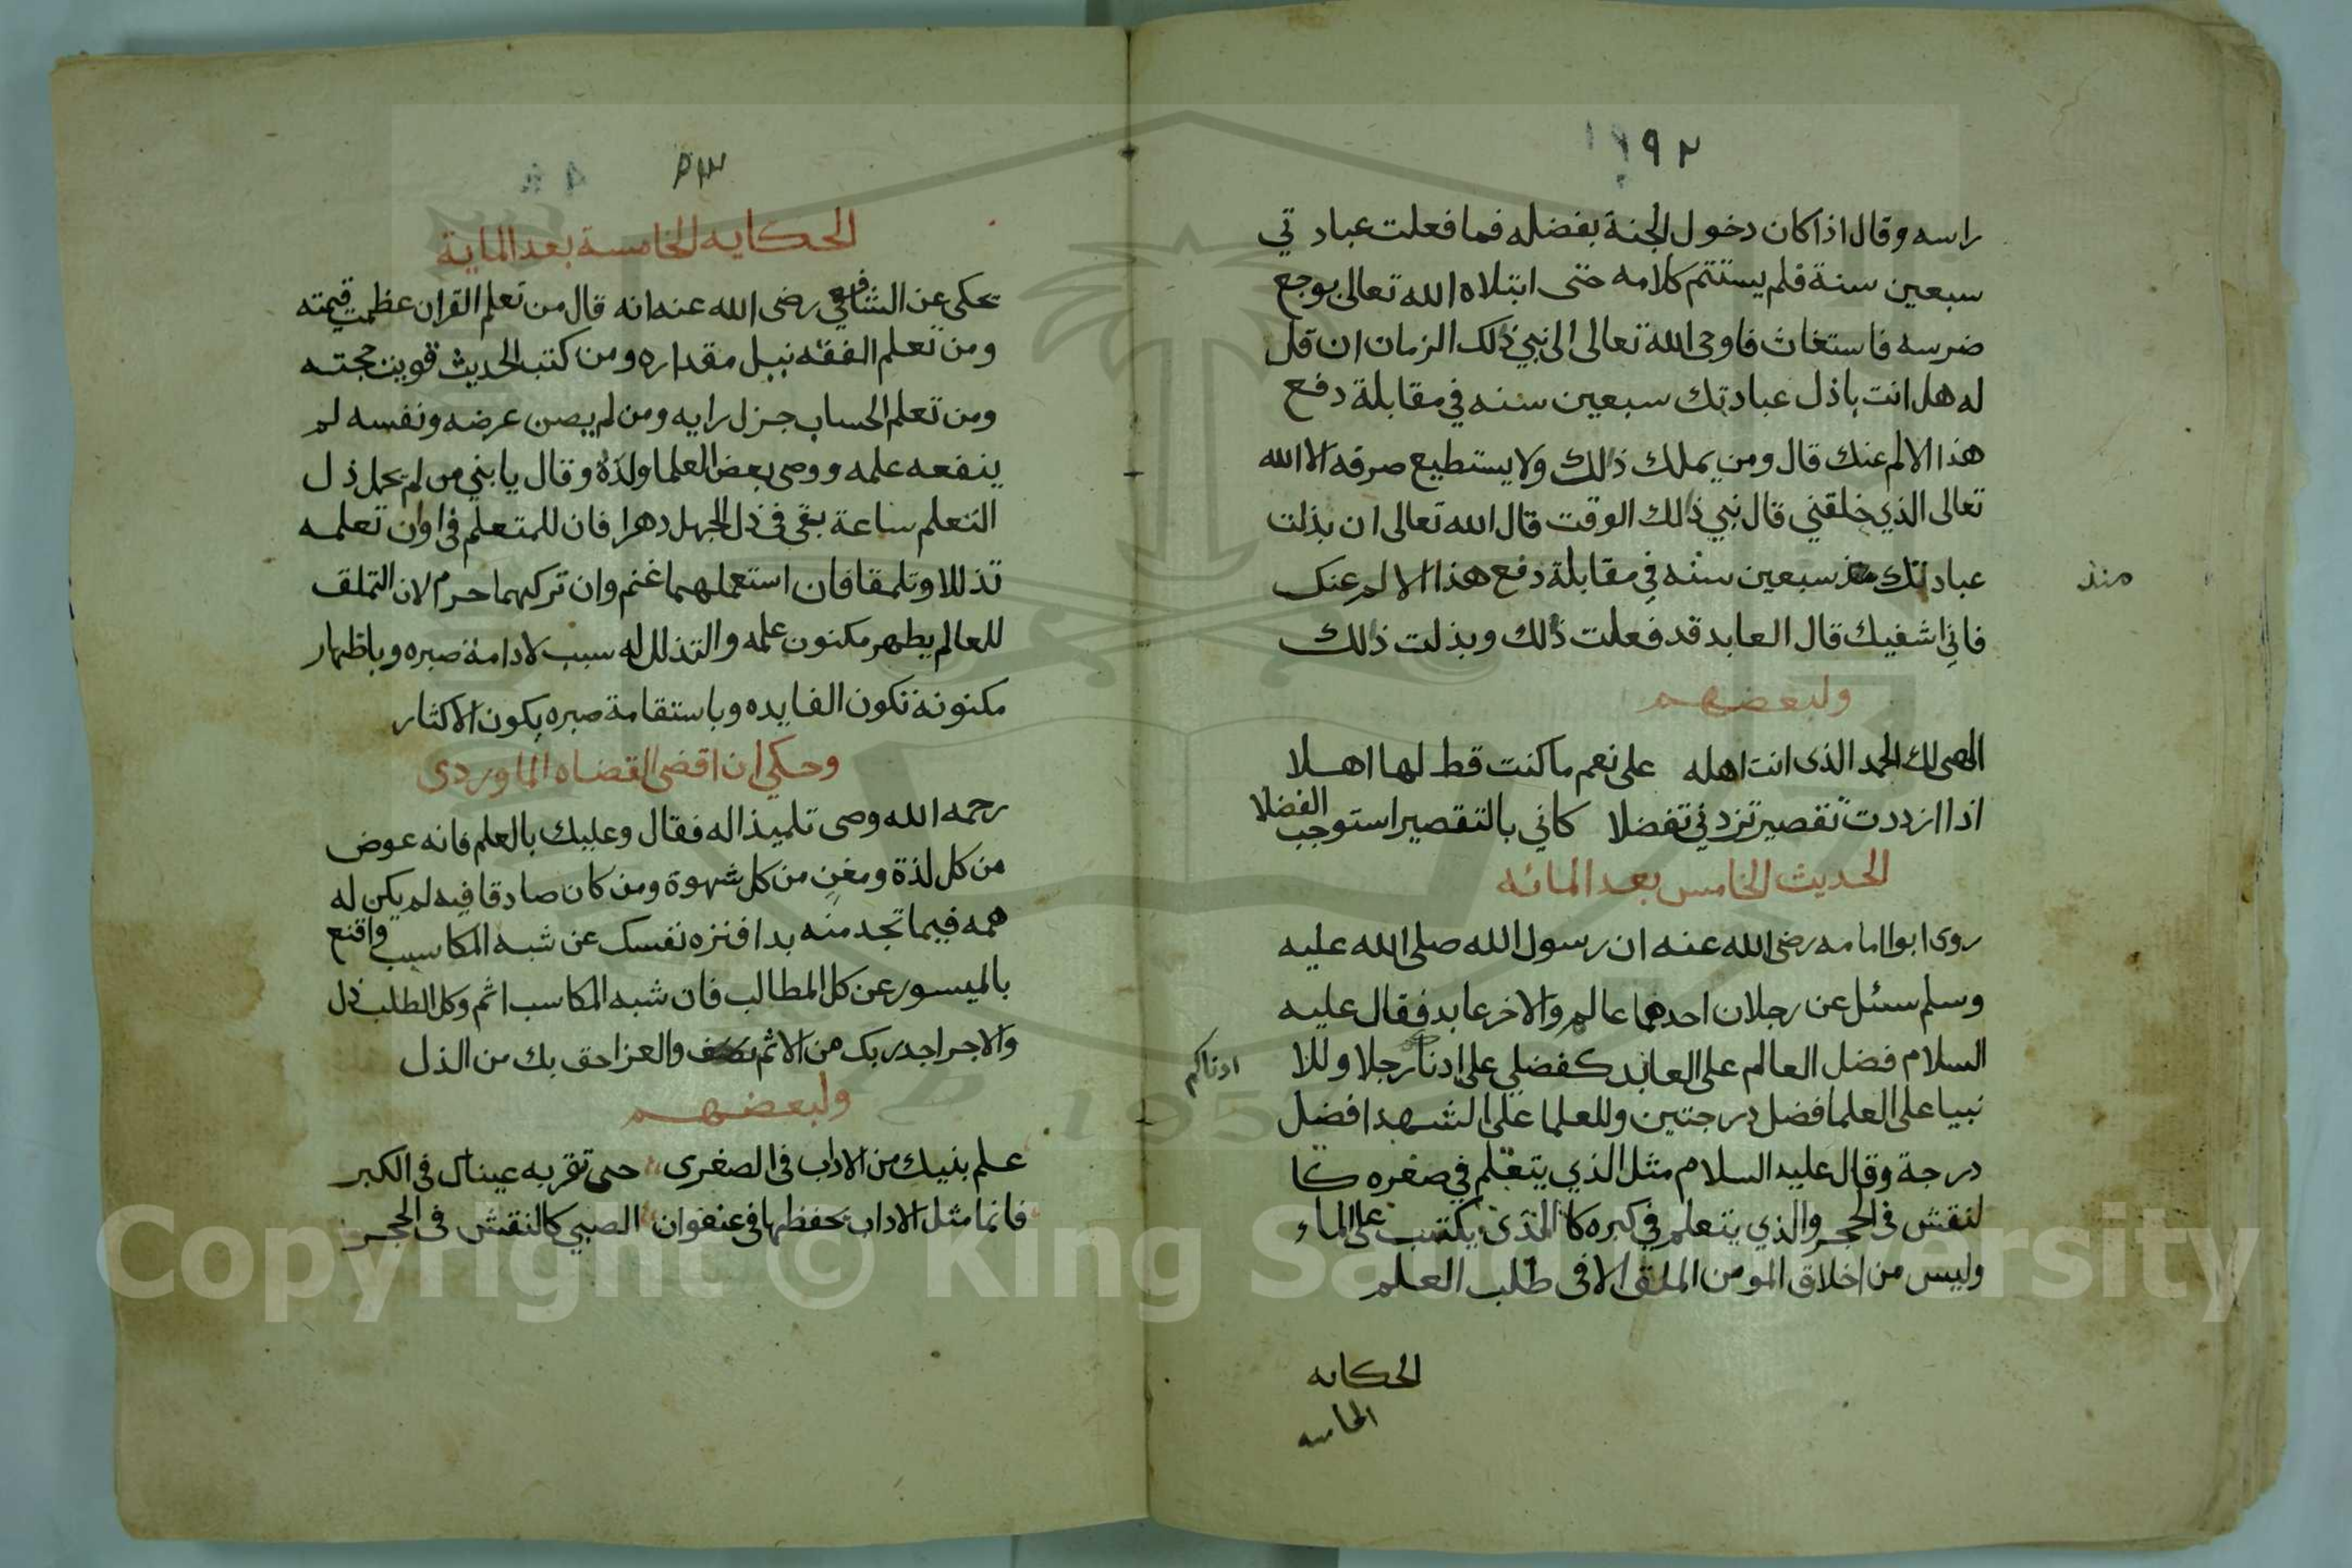 ١٩٢
راسه وقال اذا كان دخول الجنة بفضله فما فعلت عباد تي
سبعين سنة فلم يستتم كلامه حتى ابتلاه الله تعالى بوجع
ضرسه فاستغاث فاوحى الله تعالى الى نبي ذلك الزمان ان قل
له هل انت باذل عبادتك سبعين سنه في مقابلة دفع
هذا الالم عنك قال ومن يملك ذلك ولا يستطيع صرفه الا الله
تعالى الذي خلقني قال نبي ذلك الوقت قال الله تعالى ان بذلت
عبادتك سبعين سنه في مقابلة دفع هذا الالم عنك
منذ
فاني اشفيك قال العابد قد فعلت ذلك وبذلت ذلك
ولبعضهم
الهى لك الحمد الذى انت اهله على نعم ما كنت قط لها اهلا
اذا ازددت تقصير تزدني تفضلا كاني بالتقصير استوجب الفضلا
الحديث الخامس بعد المائه
روى ابوا امامه رضى الله عنه ان رسول الله صلى الله عليه
وسلم سئل عن رجلان احدهما عالم والاخر عابد فقال عليه
السلام فضل العالم على العابد كفضلي على ادنا رجلا وللا
ادناكم
نبيا على العلما فضل درجتين وللعلما على الشهدا فضل
درجة وقال عليه السلام مثل الذي يتعلم في صغره كا
لنقش في الحجر والذي يتعلم في كبره كا الذى يكتب على الماء
وليس من اخلاق المومن الملق الا فى طلب العلم
الحكايه
الخامسه
الحكايه الخامسة بعد الماية
يحكى عن الشافعي رضى الله عنه انه قال من تعلم القران عظمت قيمته
ومن تعلم الفقه نبل مقداره ومن كتب الحديث قويت حجته
ومن تعلم الحساب جزل رايه ومن لم يصن عرضه ونفسه لم
ينفعه علمه ووصى بعض العلما ولده وقال يا بني من لم يحمل ذل
التعلم ساعة بقى فى ذل الجهل دهرا فان للمتعلم فى اوان تعلمه
تذللا وتلمقا فان استعملهما غنم وان تركهما حرم لان التملق
للعالم يظهر مكنون علمه والتذلل له سبب لادامة صبره وباظهار
مكنونة تكون الفايده وباستقامة صبره يكون الاكثار
وحكي ان اقضى القضاه الماوردى
رحمه الله وصى تلميذا له فقال وعليك بالعلم فانه عوض
من كل لذة ومغن من كل شهوة ومن كان صادقا فيه لم يكن له
همه فيما تجد منه بدا فنزه نفسك عن شبه المكاسب واقنع
بالميسور عن كل المطالب فان شبه المكاسب اثم وكل الطلب ذل
والاجر اجدر بك من الاثم والعز احق بك من الذل
ولبعضهم
علم بنيك من الاداب فى الصغرى حتى تقر به عيناك فى الكبر
فانما مثل الاداب تحفظها فى عنفوان الصبي كالنقش فى الحجر
Copyright © King Saud University